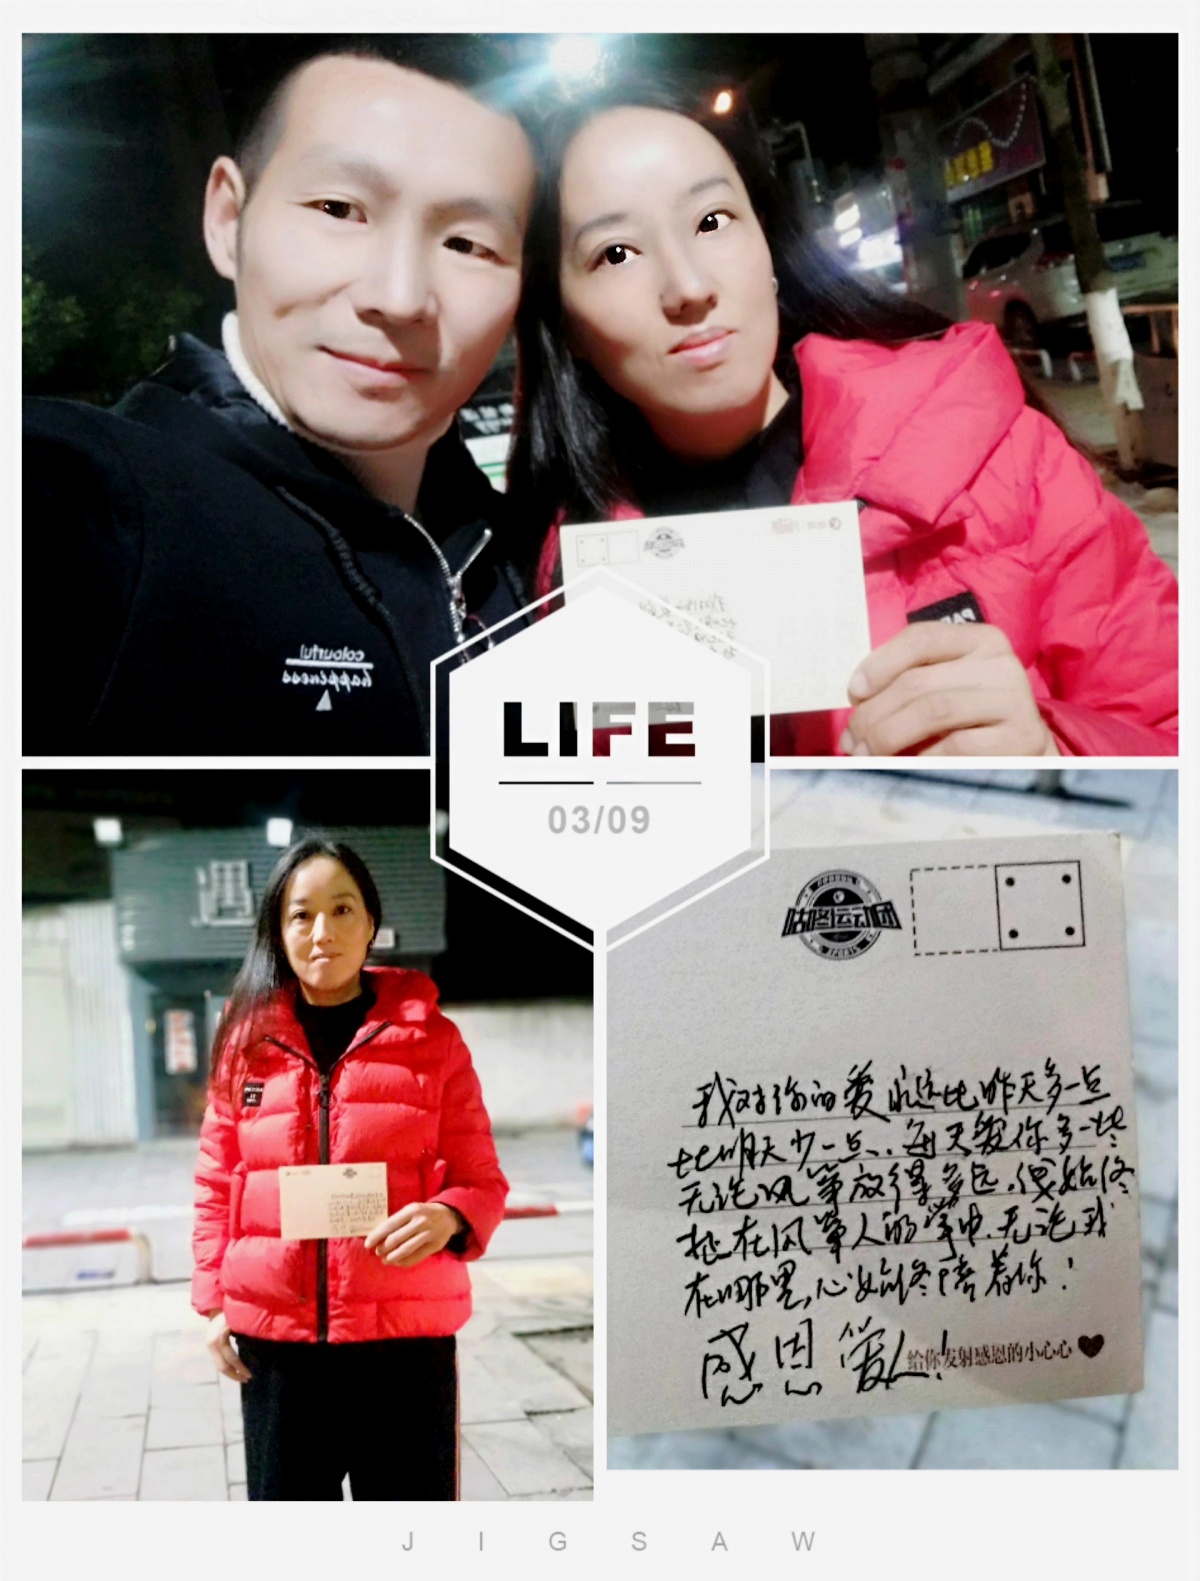 colourful
happiness
LIFE
03/09
咕咚运动团
我对你的爱永远比昨天多一点
比明天少一点,每天爱你多一些
无论风筝放得多远,线始终
在风筝人的掌中,无论我
在哪里,心始终陪着你!
感恩爱人!
给你发射感恩的小心心
JIGSAW